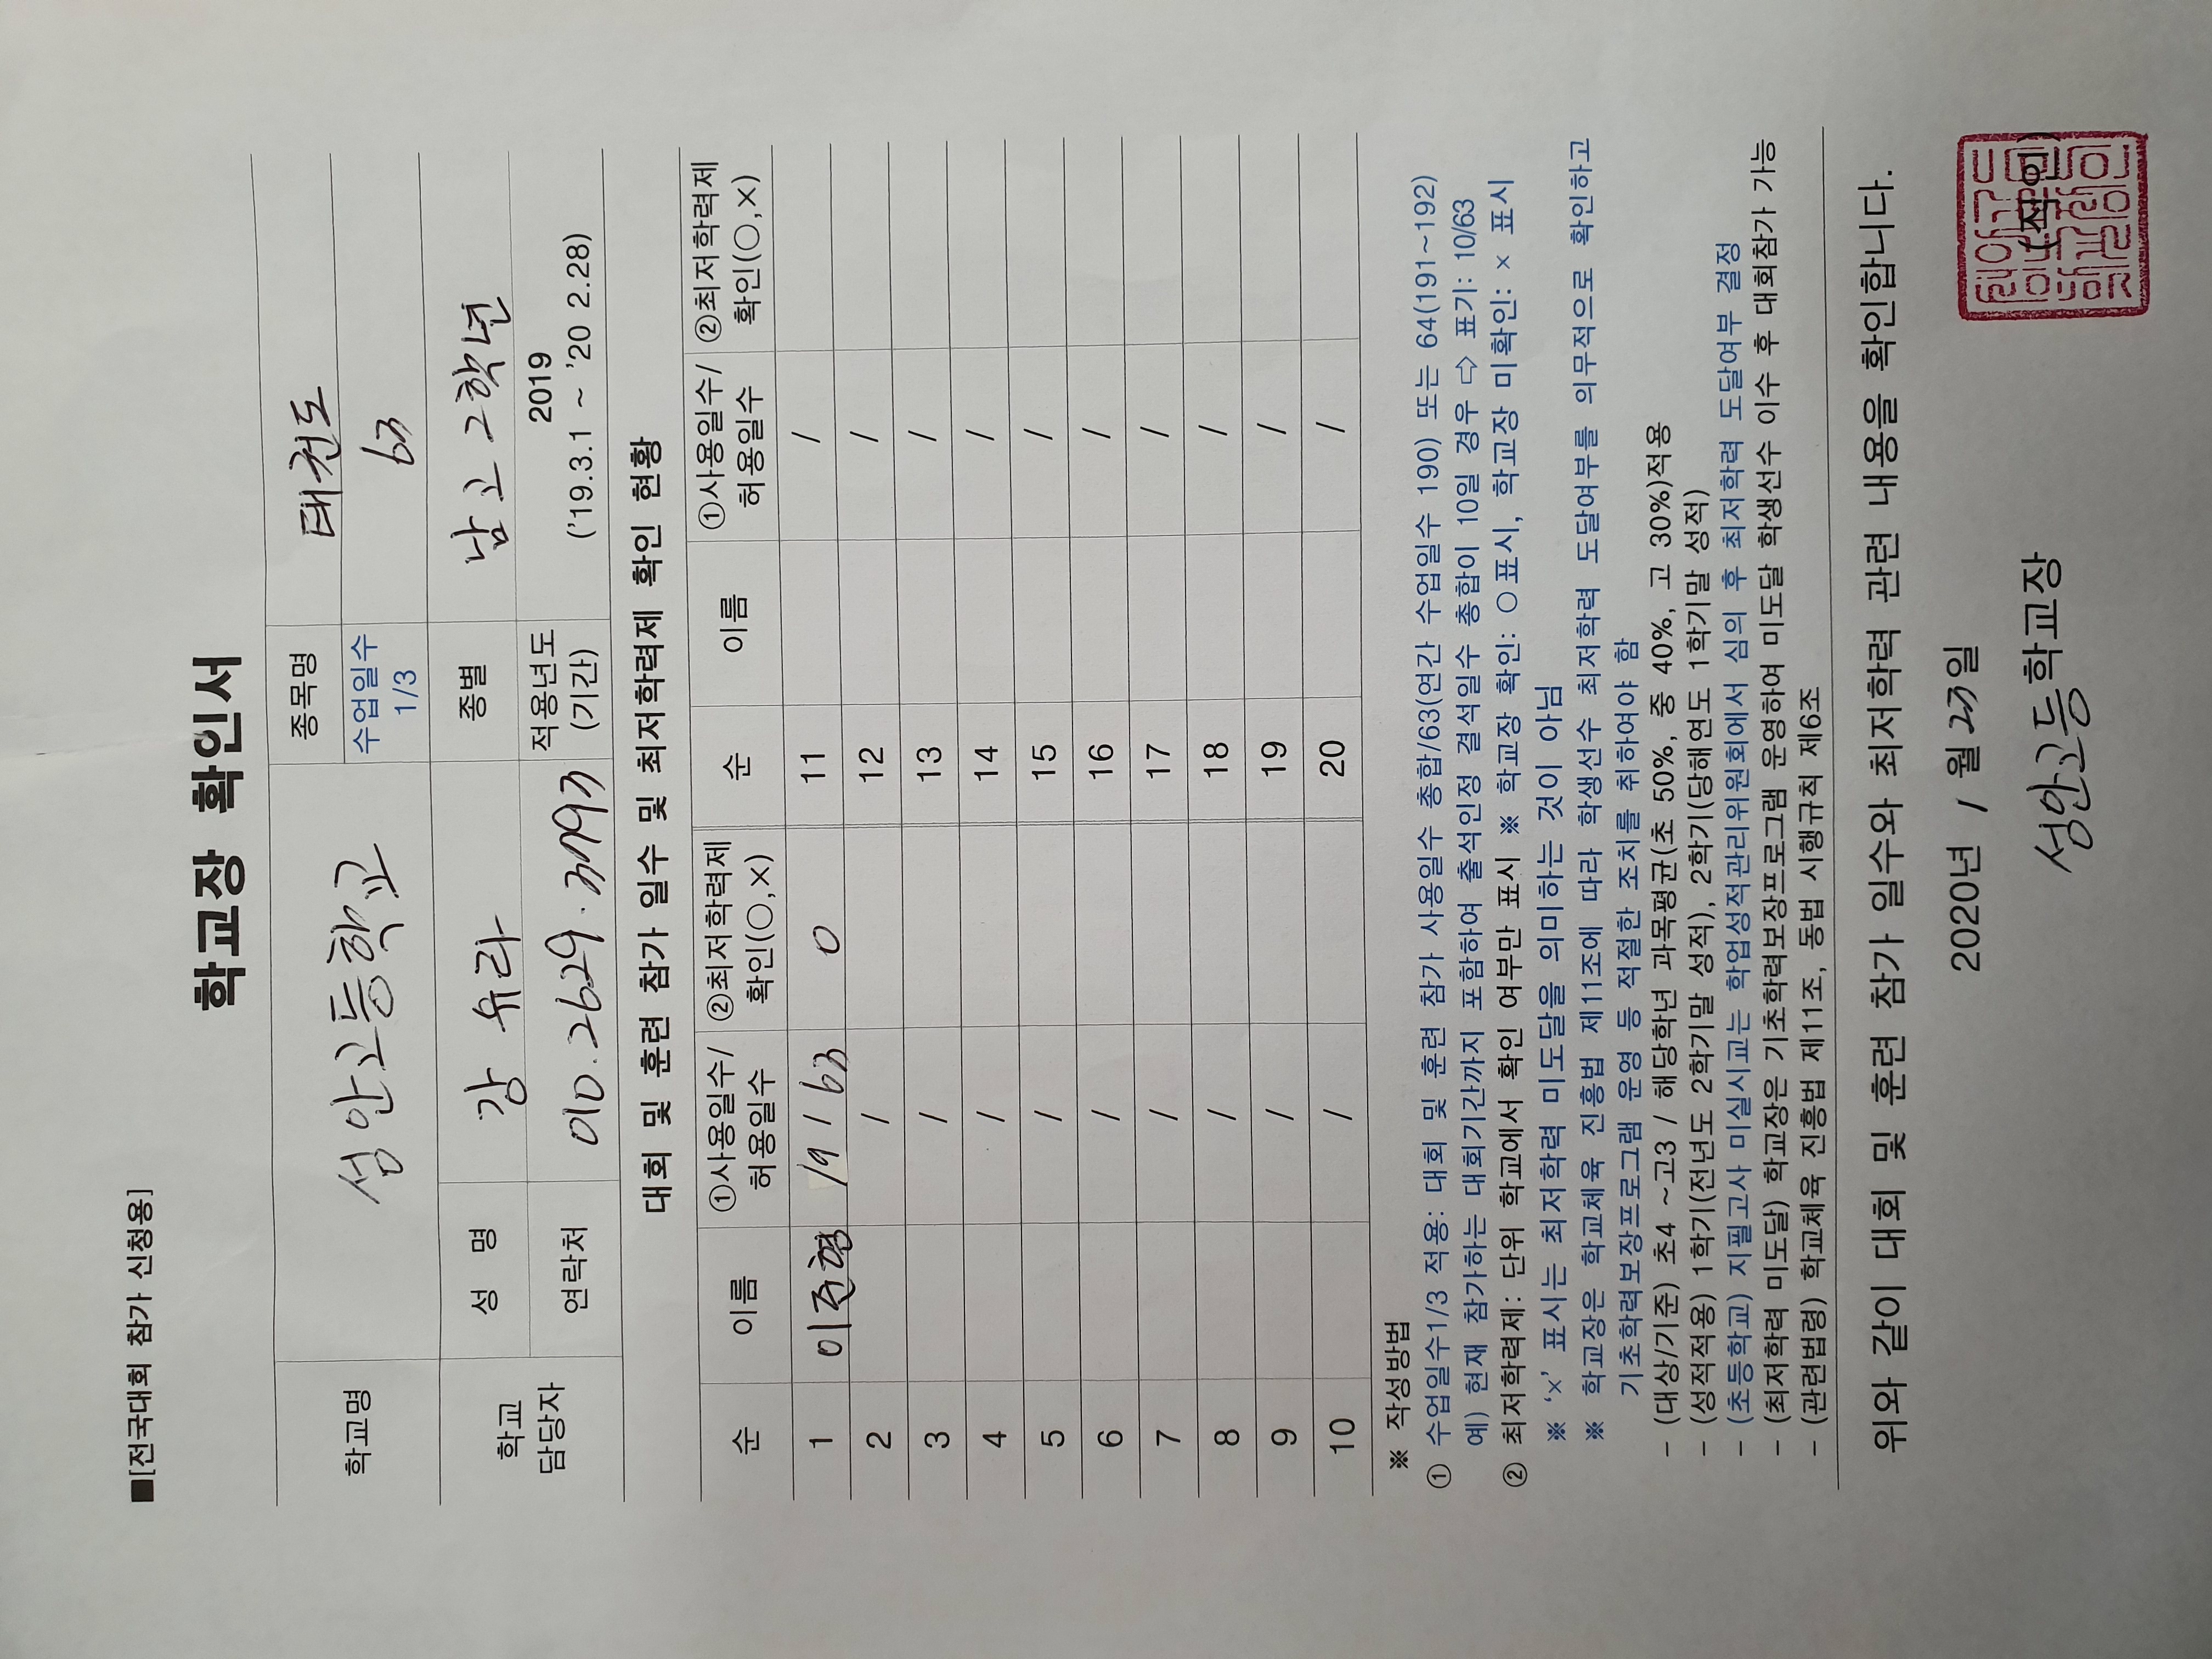 ■[전국대회 참가 신청용]
학교장 확인서
학교명 성안고등학교 종목명 태권도
수업일수 1/3 63
학교 담당자 성 명 강유라 종별 남고 2학년
연락처 010.2629.3793 적용년도 (기간) 2019 ('19.3.1 ~ '20 2.28)
대회 및 훈련 참가 일수 및 최저학력제 확인 현황
순 이름 ①사용일수/허용일수 ②최저학력제 확인(○,×) 순 이름 ①사용일수/허용일수 ②최저학력제 확인(○,×)
1 이준형 19 / 63 0 11 /
2 / 12 /
3 / 13 /
4 / 14 /
5 / 15 /
6 / 16 /
7 / 17 /
8 / 18 /
9 / 19 /
10 / 20 /
※ 작성방법
① 수업일수1/3 적용: 대회 및 훈련 참가 사용일수 총합/63(연간 수업일수 190) 또는 64(191~192)
예) 현재 참가하는 대회기간까지 포함하여 출석인정 결석일수 총합이 10일 경우 ⇨ 표기: 10/63
② 최저학력제: 단위 학교에서 확인 여부만 표시 ※ 학교장 확인: ○표시, 학교장 미확인: × 표시
※ '×' 표시는 최저학력 미도달을 의미하는 것이 아님
※ 학교장은 학교체육 진흥법 제11조에 따라 학생선수 최저학력 도달여부를 의무적으로 확인하고
기초학력보장프로그램 운영 등 적절한 조치를 취하여야 함
- (대상/기준) 초4 ~고3 / 해당학년 과목평균(초 50%, 중 40%, 고 30%)적용
- (성적적용) 1학기(전년도 2학기말 성적), 2학기(당해연도 1학기말 성적)
- (초등학교) 지필고사 미실시교는 학업성적관리위원회에서 심의 후 최저학력 도달여부 결정
- (최저학력 미도달) 학교장은 기초학력보장프로그램 운영하여 미도달 학생선수 이수 후 대회참가 가능
- (관련법령) 학교체육 진흥법 제11조, 동법 시행규칙 제6조
위와 같이 대회 및 훈련 참가 일수와 최저학력 관련 내용을 확인합니다.
2020년 1월 23일
성안고등학교장 (직인)